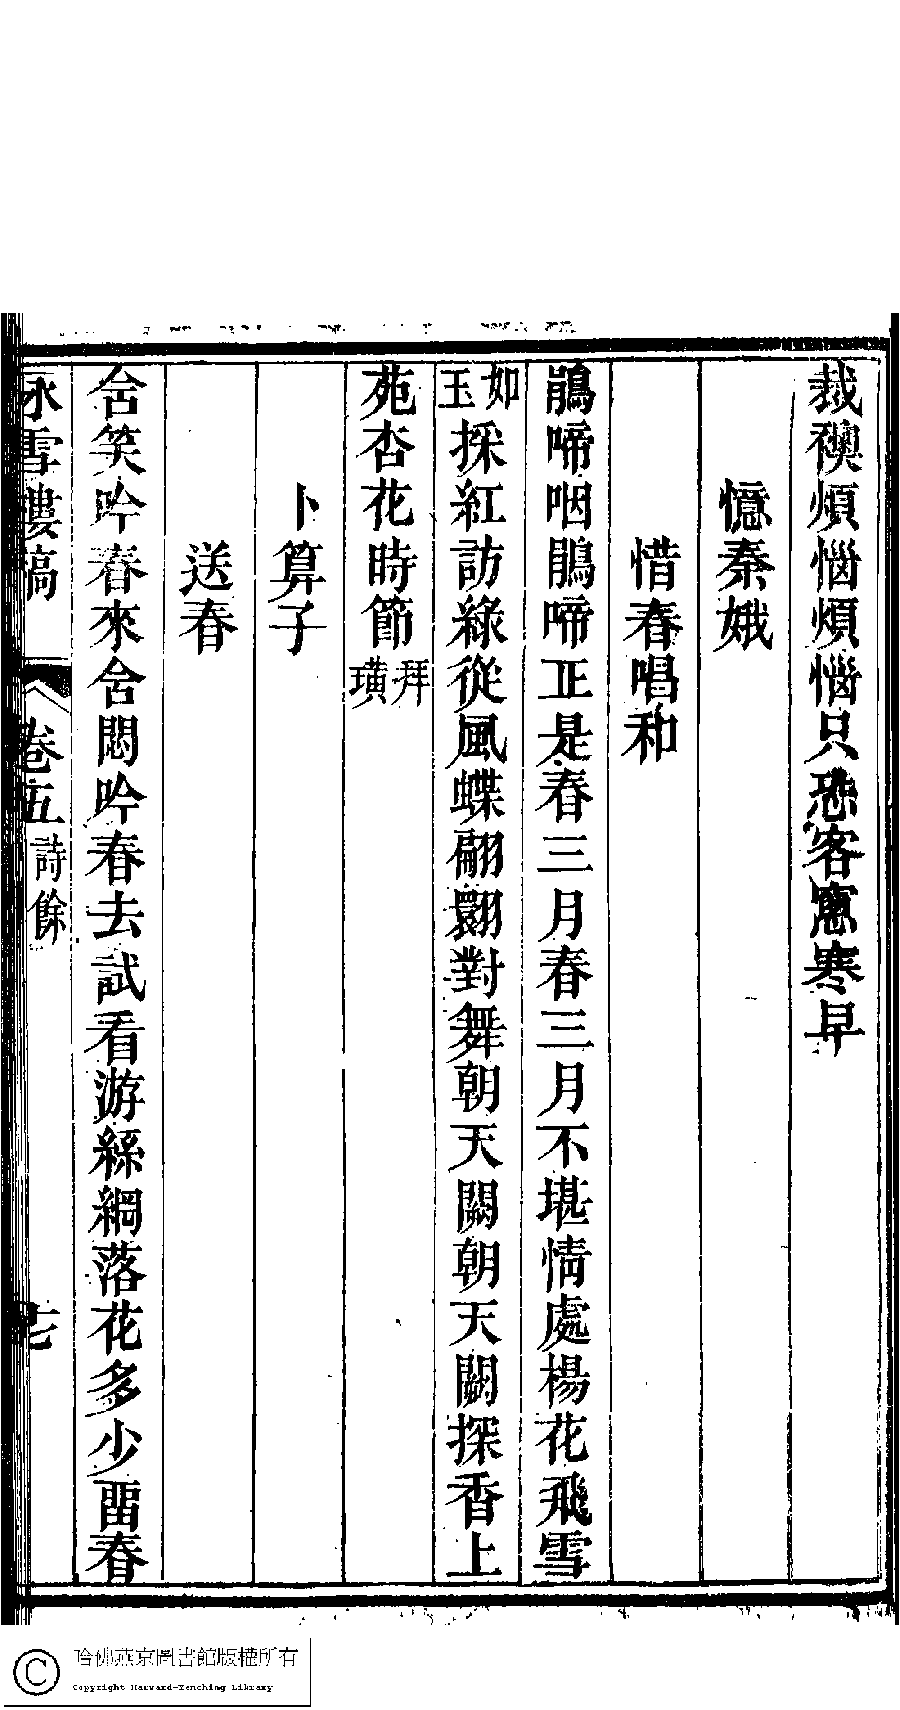 裁襖煩惱煩惱只恐客窻寒早
憶秦娥
惜春唱和
鵑啼咽鵑啼正是春三月春三月不堪情處楊花飛雪
如玉採紅訪綠從風蝶翩翾對舞朝天闕朝天闕探香上
苑杏花時節拜璜
卜算子
送春
含笑吟春來含悶吟春去試看游絲綱落花多少畱春
氷雪樓稿
卷五 詩餘
七
哈佛燕京圖書館版權所有
Copyright Harvard-Yenching Library